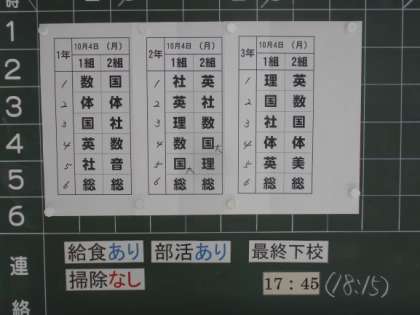 時
1
2
3
4
5
6
連
絡
1年 10月4日 (月)
1組 2組
1 数 国
2 体 体
3 国 社
4 英 数
5 社 音
6 総 総
2年 10月4日 (月)
1組 2組
1 社 英
2 英 社
3 理 数
4 数 国
5 国 理
6 総 総
3年 10月4日 (月)
1組 2組
1 理 英
2 英 数
3 社 国
4 体 体
5 英 美
6 総 総
給食あり 部活あり 最終下校
掃除なし 17:45 (18:15)